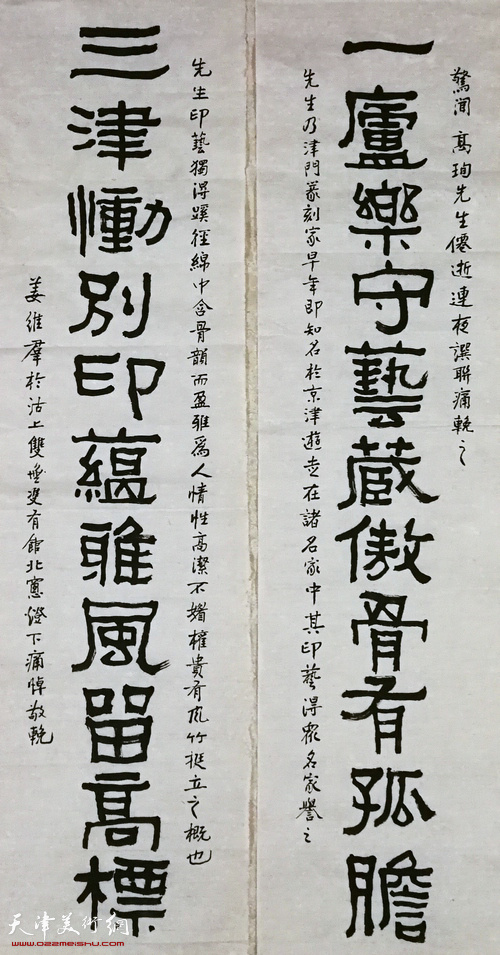 驚聞高珣先生僊逝連夜譔聯痛輓之
一廬樂守藝蔵傲骨有孤膽
先生乃津門篆刻家早年即知名於京津遊走在諸名家中其印藝得眾名家譽之
先生印藝獨得蹊徑綿中含骨韻而盈雅為人情性高潔不媚權貴有孤竹挺立之概也
三津慟別印蘊雅風留高標
姜維群於沽上雙
有館北窻燈下痛悼敬輓
天津美術網
www.022meishu.com